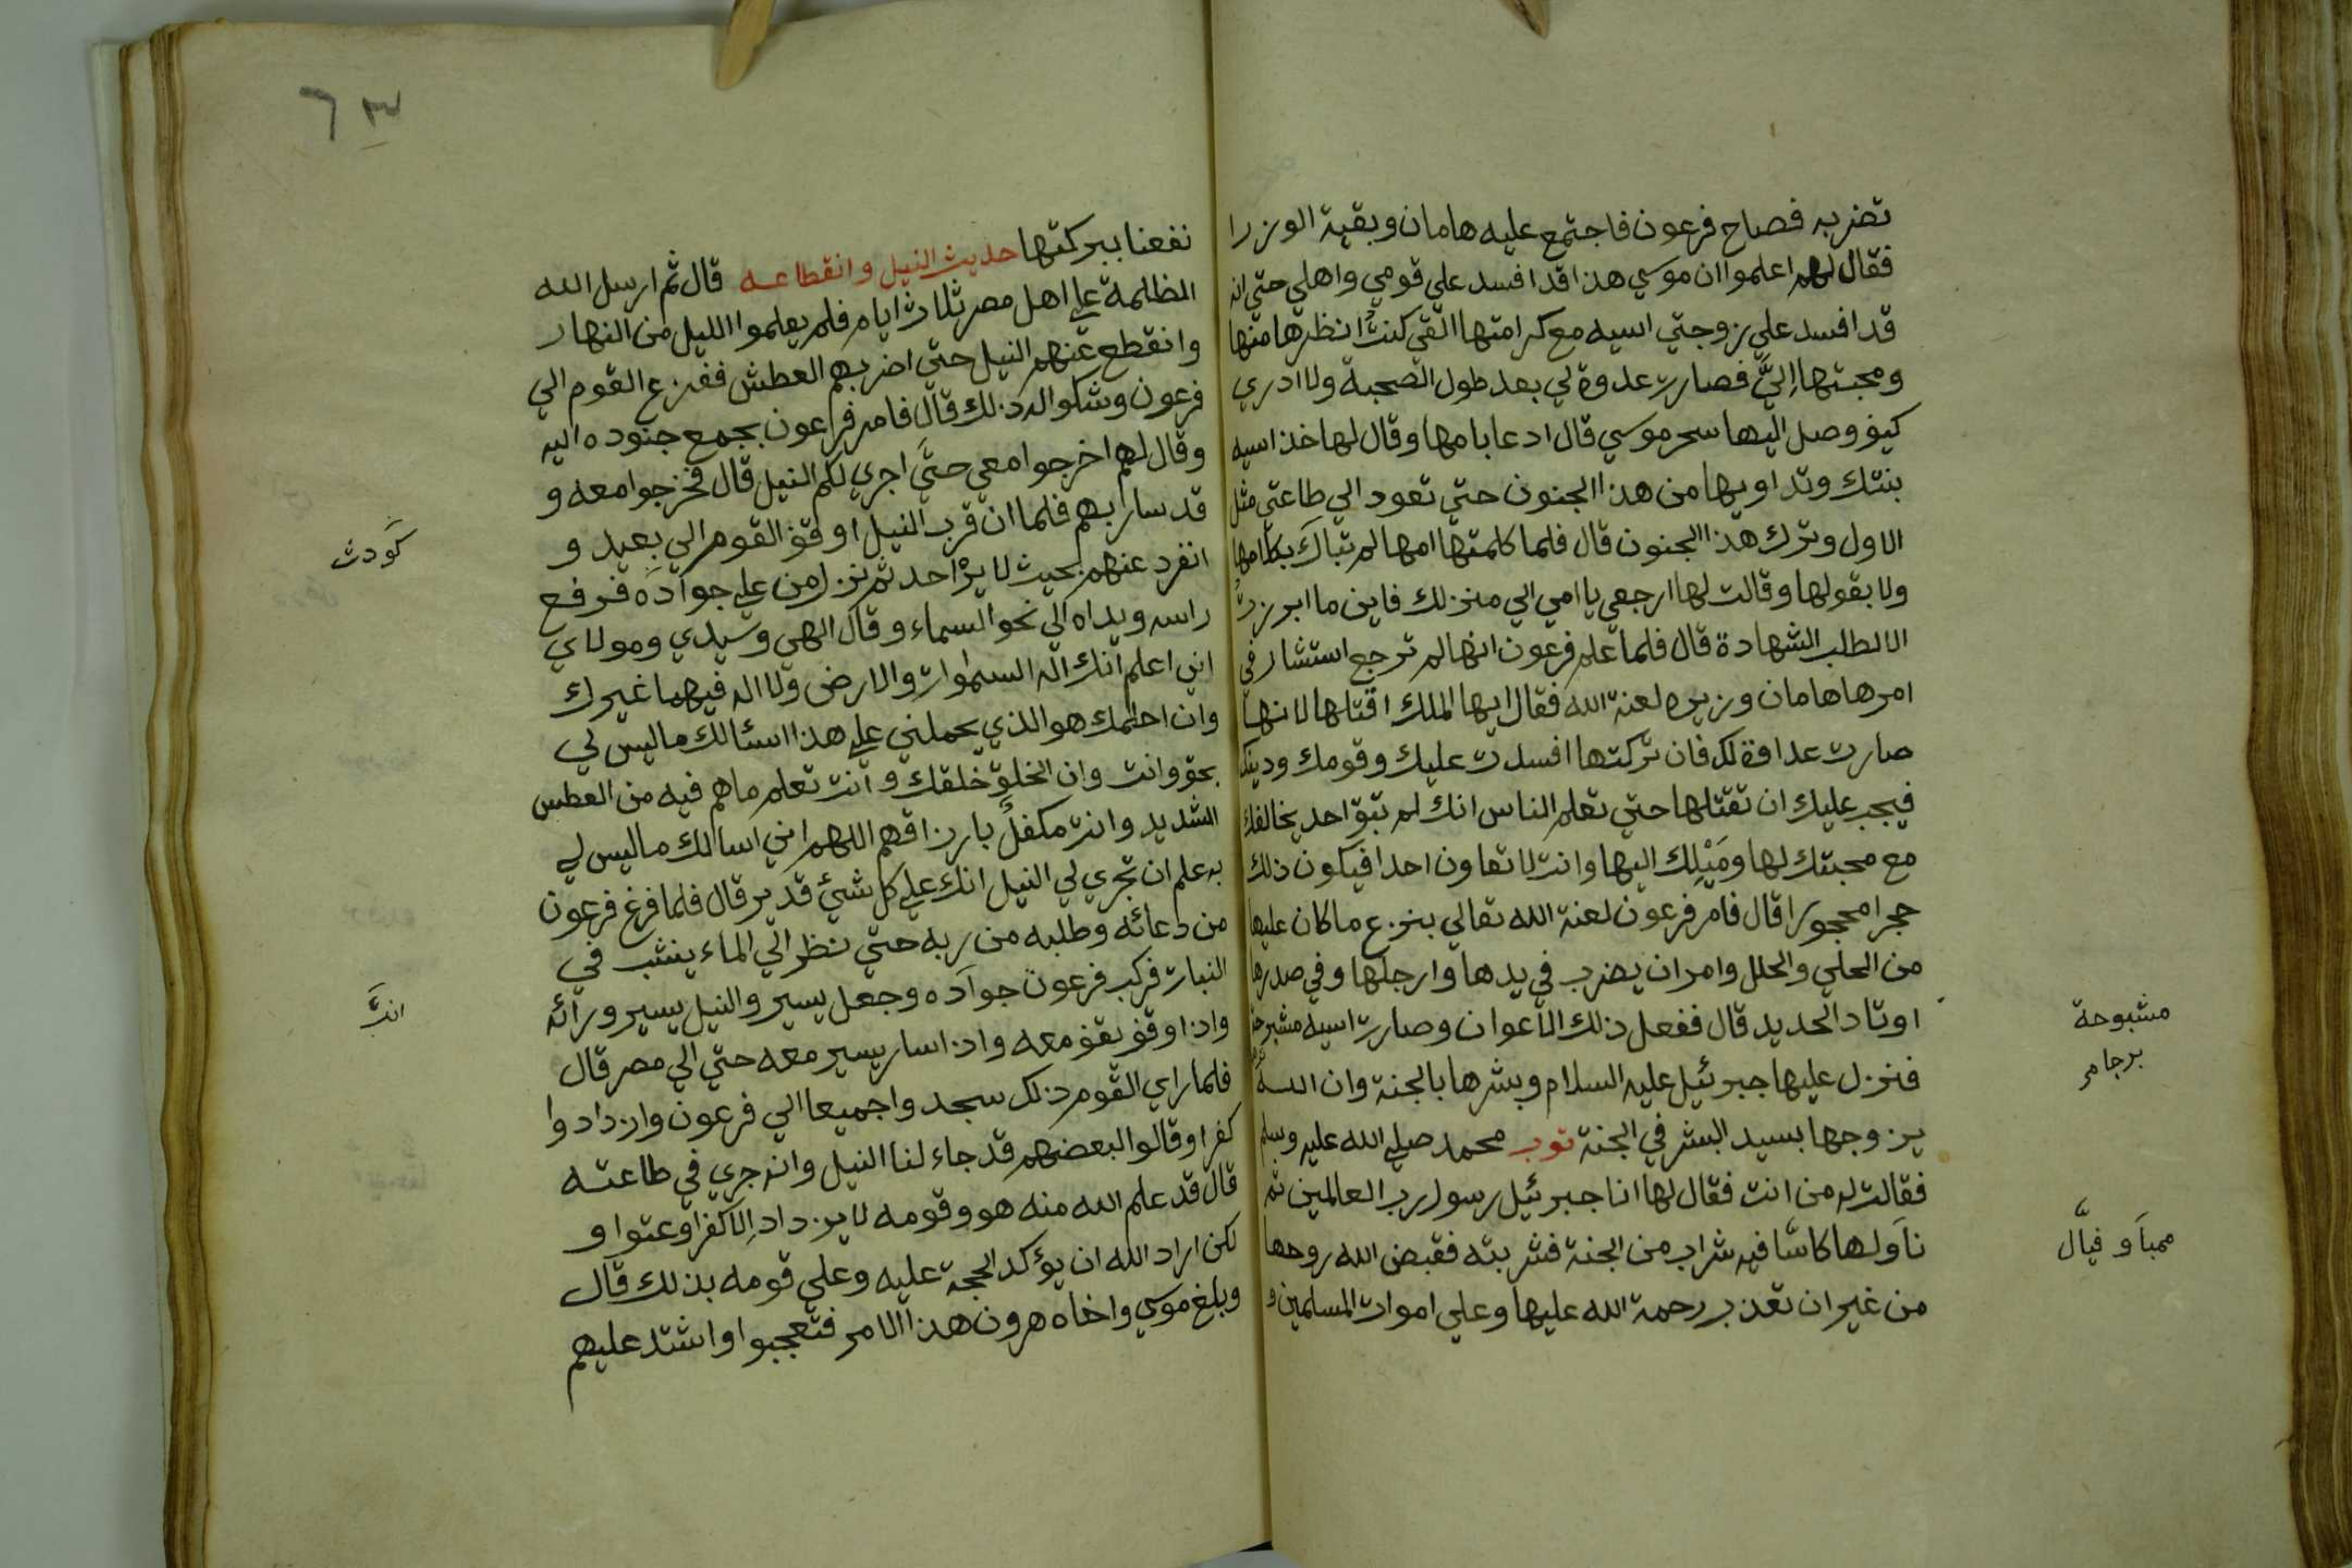 تضربه فصاح فرعون فاجتمع عليه هامان وبقية الوزرا
فقال لهم اعلموا ان موسي هذا قد افسد علي قومي واهلي حتي انه
قد افسد علي زوجتي اسيه مع كرامتها التي كنتُ انظرها منها
ومحبتها اِليَّ فصارت عدوة لي بعد طول الصحبة ولا ادري
كيف وصل اليها سحر موسي قال ادعا بامها وقال لها خذ اسيه
بنتك وتداويها من هذا الجنون حتي تعود الي طاعتي مثل
الاول وترك هذا الجنون قال فلما كلمتها امها لم تباك بكلامها
ولا بقولها وقالت لها ارجعي يا امي الي منزلك فاين ما ابرزتُ
الا لطلب الشهادة قال فلما علم فرعون انها لم ترجع استشار في
امرها هامان وزيره لعنة الله فقال ايها الملك اقتلها لانها
صارت عداوة لك فان تركتها افسدت عليك وقومك ودينك
فيجب عليك ان تقتلها حتي تعلم الناس انك لم تبق احد يخالفك
مع محبتك لها ومَيْلِك اليها وانت لا تعاون احدا فيكون ذلك
حجرا محجورا قال فامر فرعون لعنة الله تعالي بنزع ما كان عليها
من الحلي والحلل وامر ان يضرب في يدها وارجلها وفي صدرها
اوتاد الحديد قال ففعل ذلك الاعوان وصارت اسيه مشبوحة
فنزل عليها جبرئيل عليه السلام وبشرها بالجنة وان الله
يزوجها بسيد البشر في الجنة توب محمد صلي الله عليه وسلم
فقالت له من انت فقال لها انا جبرئيل رسول رب العالمين ثم
ناولها كاسًا فيه شراب من الجنة فشربته فقبض الله روحها
من غير ان تعذب رحمة الله عليها وعلي اموات المسلمين و
مشبوحة
برجامر
ممباَو فيَّال
٦٣
نفعنا ببركتها حديث النيل وانقطاعه قال ثم ارسل الله
المظلمة علي اهل مصر ثلاث ايام فلم يعلموا الليل من النهار
وانقطع عنهم النيل حتي اضر بهم العطش ففزع القوم الي
فرعون وشكوا له ذلك قال فامر فرعون بجمع جنوده اليه
وقال لهم اخرجوا معي حتَّي اجري لكم النيل قال فخرجوا معه و
قد سار بهم فلما ان قرب النيل اوقف القوم الي بعيد و
انفرد عنهم بحيث لا يرْ احد ثم نزل من علي جواده فرفع
راسه ويداه الي نحو السماء وقال الهي وسيدي ومولاي
اني اعلم انك اله السموات والارض ولا اله فيهما غيرك
وان احلمك هو الذي يحملني علي هذا اسئالك ما ليس لي
بحق وانت وان الخلق خلقك وانت تعلم ما هم فيه من العطس
الشديد وانت مكفلٌ بارزاقهم اللهم اني اسالك ما ليس لي
به علم ان تجري لي النيل انك علي كل شيئ قدير قال فلما فرغ فرعون
من دعائه وطلبه من ربه حتي نظر الي الماء ينشب في
النبات فركب فرعون جواده وجعل يسير والنيل يسير ورائه
واذا وقف يقف معه واذا سار يسير معه حتي الي مصر قال
فلما راي القوم ذلك سجدوا جميعا الي فرعون وازدادوا
كفرا وقالوا لبعضهم قد جاء لنا النيل وانه جري في طاعته
قال قد علم الله منه هو وقومه لا يزداد اِلا كفرا وعتوا و
لكن اراد الله ان يؤكد الحجة عليه وعلي قومه بذلك قال
وبلغ موسي واخاه هرون هذا الامر فتعجبوا واشتد عليهم
كَودث